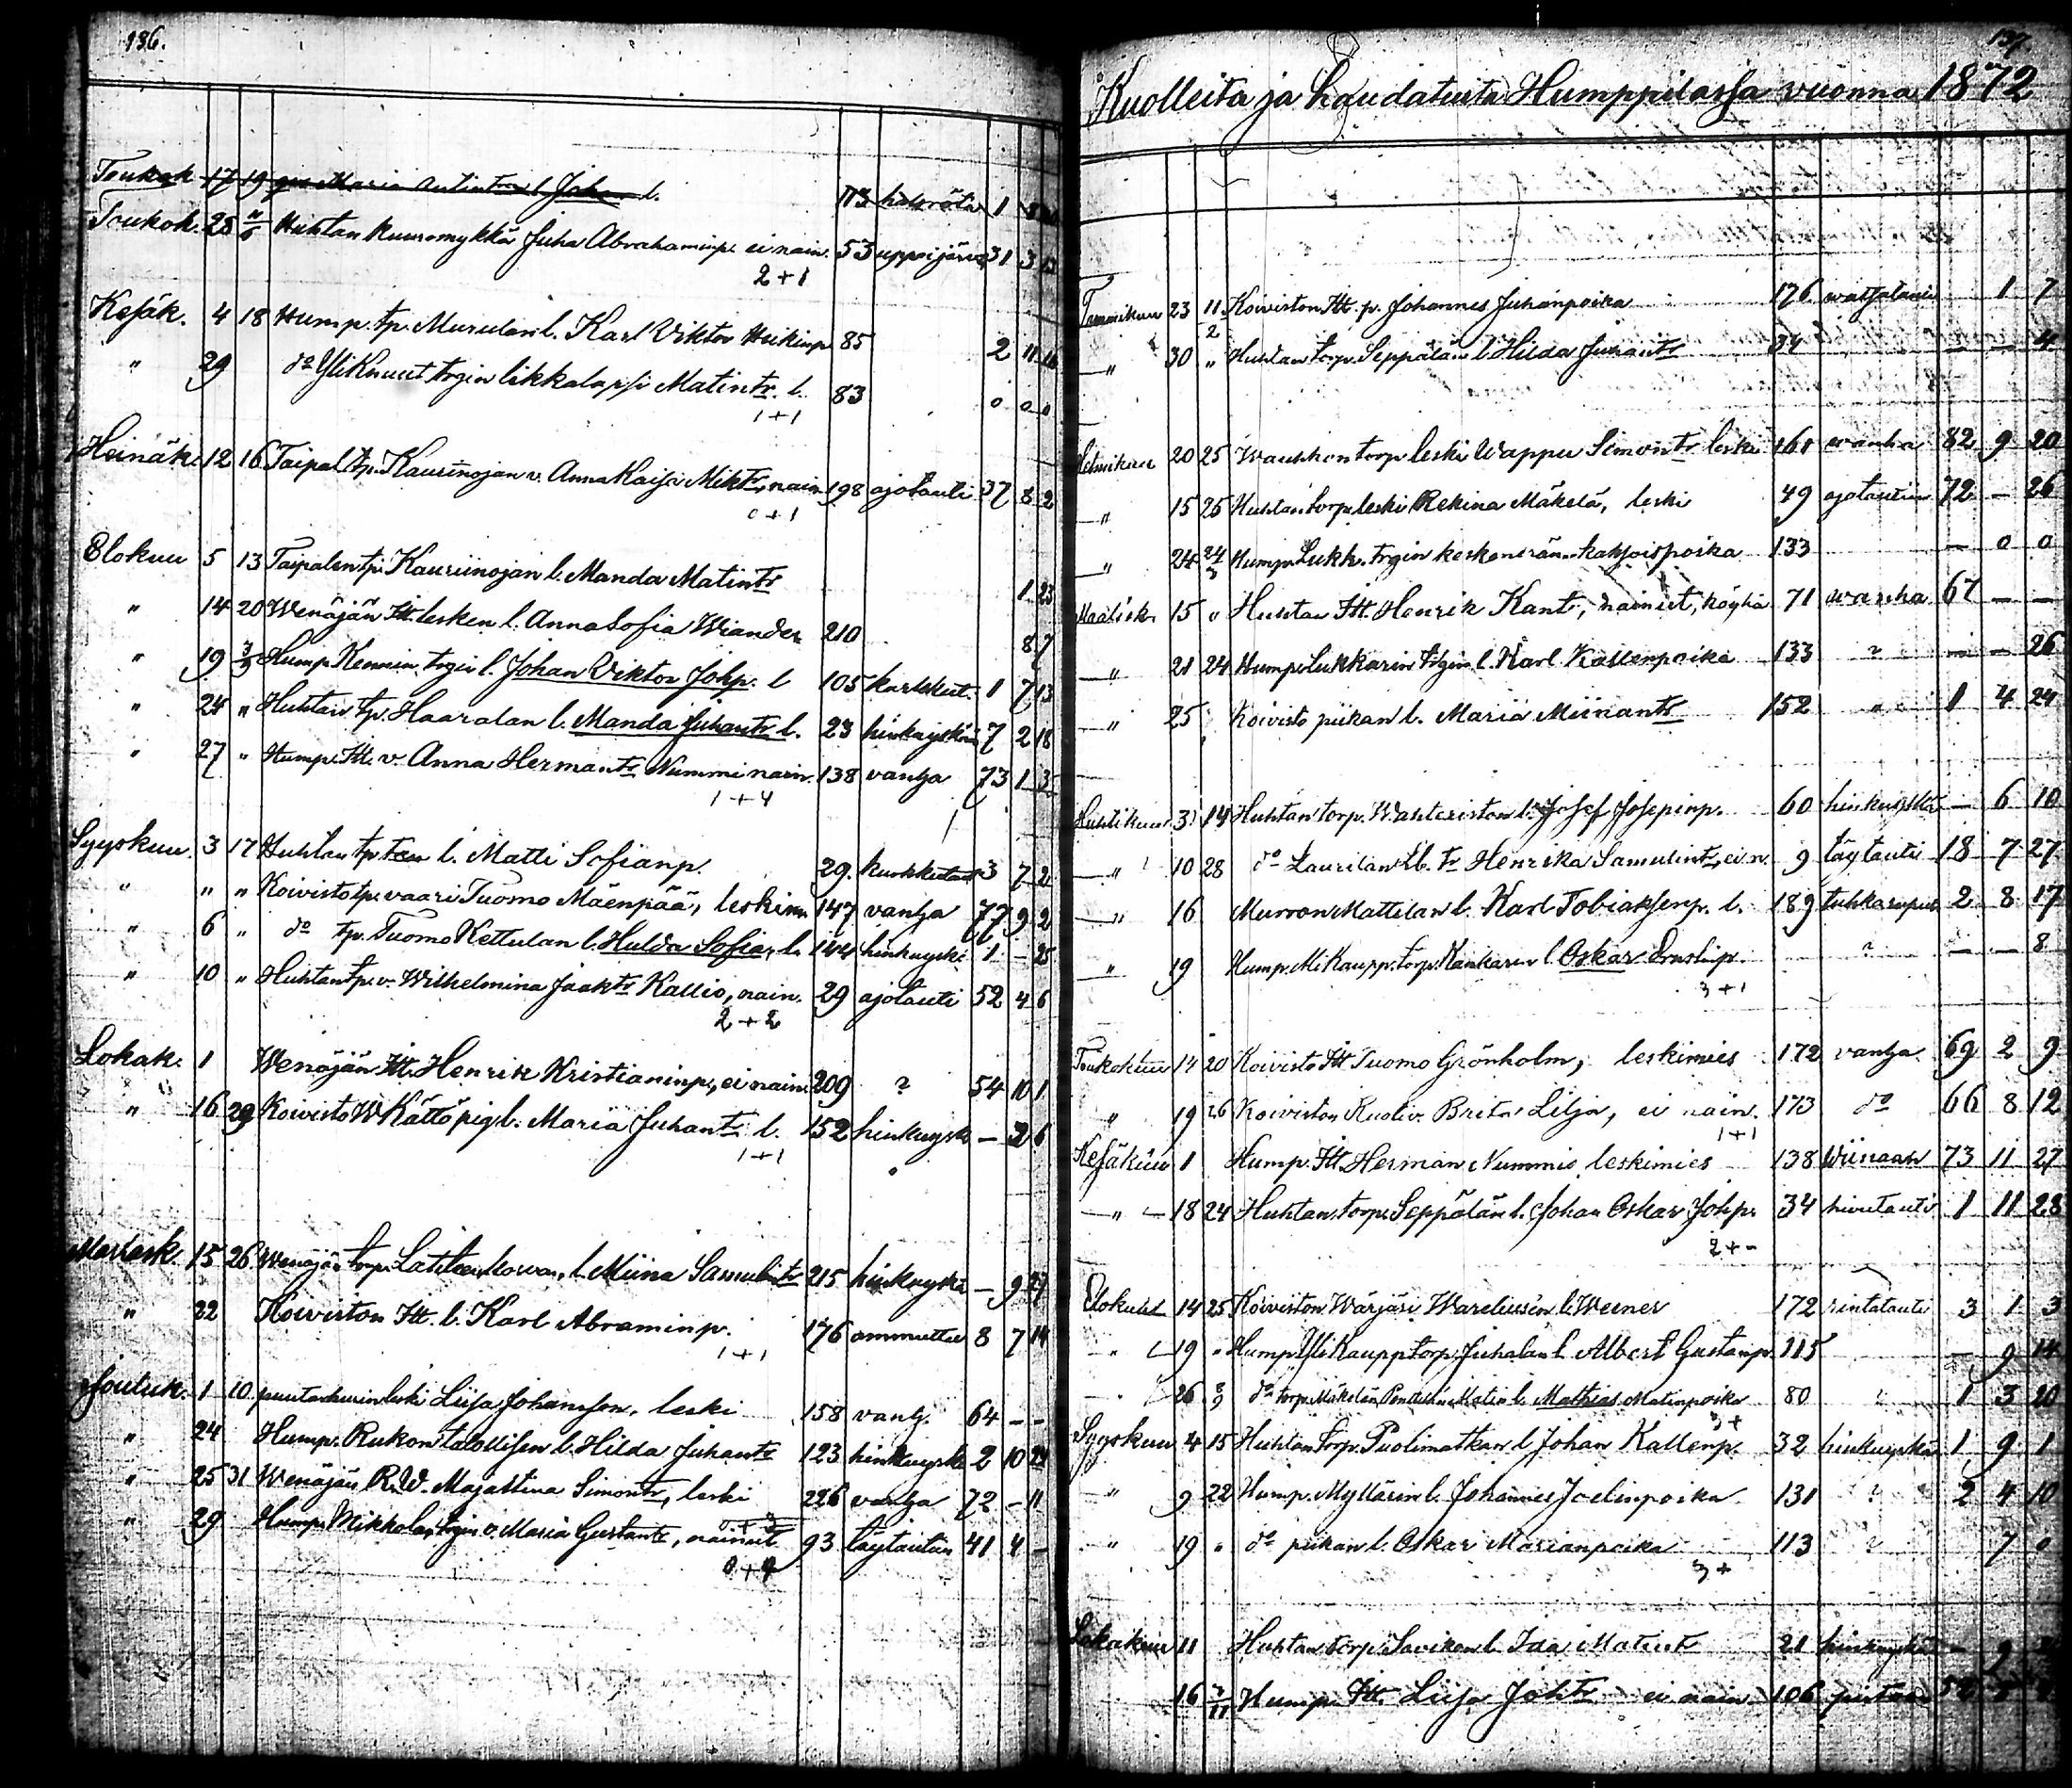 136.
Toukok 17 19 Maria l. 113 1
Toukok. 28 Huhtan kuuromykkä Juha Abrahaminp. ei nain. 53 31 3
2+1
Kesäk. 4 18 Hump. tp. Murulan l. Karl Viktor Heikinp 85 2 11
" 29 do Yli Knuut trgin likkalapsi Matintr. l. 83 0 0 0
1+1
Heinäk. 12 16 Taipal. tp. Kauriinojan v. Anna Kaisa Miktr, nain 198 ajotauti 37 8 2
0+1
Elokuu 5 13 Taipalen tp. Kauriinojan l. Manda Matintr 1 23
" 14 20 Wenäjän Itt. lesken l. Anna Sofia Wiander 210 8 7
" 19 3/9 Hump. trgin l. Johan Viktor Johp. l 105 kurkkut. 1 7 13
" 24 " Huhtan tp. Haaralan l. Manda Juhantr l. 23 hinkuyskä 7 2 18
" 27 " Hump. Itt. v. Anna Hermantr Nummi nain. 138 vanha 73 1 3
1+4
Syyskuu 3 17 Huhtan tp. l. Matti Sofianp. 29. 3 7 2
" " " Koivisto tp. vaari Tuomo Mäenpää, leskim 147 vanha 77 9 2
" 6 " do tp. Tuomo Kettulan l. Hulda Sofia, l. 144 hinkuysk. 1 – 25
" 10 " Huhtan tp. v. Wilhelmina Jaaktr Kallio, nain. 29 ajotauti 52 4 6
2+2
Lokak. 1 Wenäjän Itt. Henrik Kristianinp., ei nain. 209 ? 54 10 1
" 16 29 Koivisto W Kättö pig l. Maria Juhantr l. 152 hinkuysk – 2 6
1+1
Marrask. 15 26 Wenäjän torp. l. Miina Samulintr 215 hinkuyskä – 9 27
" 22 Koiviston Itt. l. Karl Abraminp. 176 ammuttu 8 7 14
1+1
Jouluk. 1 10 leski Liisa Johansson, leski 158 vanh. 64 – –
" 24 Hump. Rukon talollisen l. Hilda Juhantr 123 hinkuysk. 2 10 29
" 25 31 Wenäjän R.W. Majastina Simontr, leski 226 vanha 72 – 11
" 29 Hump. Mikkolan trgin v. Maria Gustantr, nainut 93 täytautiin 41 4 –
0+4
137.
Kuolleita ja haudatuita Humppilassa vuonna 1872
Tammikuu 23 11/2 Koiviston Itt. p. Johannes Juhanpoika 176 watsatauti 1 7
" 30 " Huhtan torp. Seppälän l. Hilda Juhantr 34 – – 4
Helmikuu 20 25 torp leski Wappu Simontr leski 161 wanha 82 9 20
" 15 25 Huhtan torp. leski Rekina Mäkelä, leski 49 ajotautiin 72 – 26
" 24 24/3 Hump. Lukk. trgin keskonerän. kaksoispoika 133 – 0 0
Maalisk. 15 " Huhtan Itt. Henrik Kant, nainut, köyhä 71 wanha 67 – –
" 21 24 Hump. Lukkarin trgin l. Karl Kallenpoika 133 ? – – 26
" 25 Koivisto piikan l. Maria Miinantr 152 " 1 4 24
Huhtikuu 3 14 Huhtan torp. Wahteriston l. Josef Josepinp. 60 hinkuyskä – 6 10
" 10 28 do Laurilan tr Henrika Samulintr, ei n. 9 täytauti 18 7 27
" 16 Murron Mattilan l. Karl Tobiaksenp. l. 189 tuhkarupul. 2 8 17
" 19 Hump. Kaupp. torp. Kankaren l. Oskar Ernstinp. ? – – 8
3+1
Toukokuu 14 20 Koivisto Itt Tuomo Grönholm, leskimies 172 vanha 69 2 9
" 19 26 Koiviston Brita Lilja, ei nain. 173 do 66 8 12
1+1
Kesäkuu 1 Hump. Itt. Herman Nummi, leskimies 138 Wiinaan 73 11 27
" 18 24 Huhtan torp. Seppälän l. Johan Oskar Johp. 34 1 11 28
2+–
Elokuu 14 25 Koiviston Wärjäri Wareliusen l. Werner 172 rintatauti 3 1 3
" 19 " Hump. Yli Kaupp torp. Juhalan l. Albert Gustanp. 115 – 9 14
" 26 8/9 do torp. Mäkelän Matin l. Mathias Matinpoika 80 1 3 20
3+
Syyskuu 4 15 Huhtan torp. Puolimatkan l. Johan Kallenp. 32 hinkuyskä 1 9 1
" 9 22 Hump. Myllärin l. Johannes Joelinpoika 131 ? 2 4 10
" 19 " do piikan l. Oskar Marianpoika 113 ? 7 0
3+
Lokakuu 11 Huhtan torp. Savikon l. Ida Matintr 21 hinkuyskä – 9
16 3/11 Hump. Itt. Liisa Johtr ei nain. 106